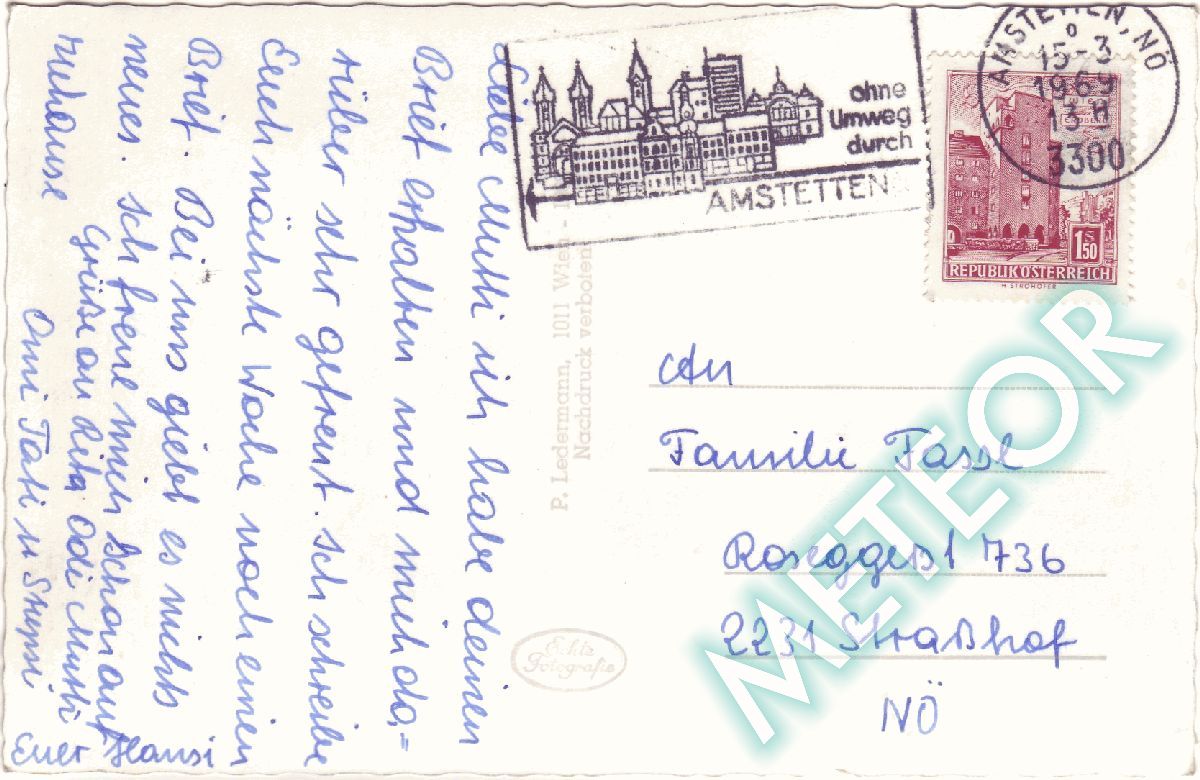 Liebe Mutti ich habe deinen
Brief erhalten und mich da=
rüber sehr gefreut. Ich schreibe
Euch nächste Woche noch einen
Brief. Bei uns giebt es nichts
neues. Ich freue mich schon auf
zuhause
Grüße an Rita, Odi Mutti
Omi Tati u Stupsi
Euer Hansi
P. Ledermann, 1011 Wien -
Nachdruck verboten
Echte
Fotografie
ohne
Umweg
durch
AMSTETTEN
AMSTETTEN, NÖ
15-3
1969
13-H
3300
1 S
50
REPUBLIK ÖSTERREICH
H. STROHOFER
An
Familie
Roseggerst 736
2231 Straßhof
NÖ
METEOR